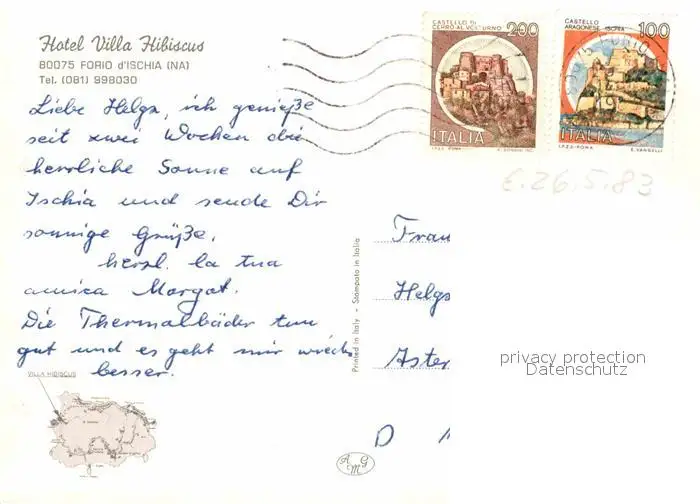 Hotel Villa Hibiscus
80075 FORIO d'ISCHIA (NA)
Tel. (081) 998030
Liebe Helga, ich genieße
seit zwei Wochen die
herrliche Sonne auf
Ischia und sende Dir
sonnige Grüße.
herzl. la tua
amica Margot.
Die Thermalbäder tun
gut und es geht mir wirkl.
besser.
VILLA HIBISCUS
Printed in Italy - Stampato in Italia
AMG
CASTELLO DI
CERRO AL VOLTURNO
200
ITALIA
I.P.Z.S. ROMA
CASTELLO
ARAGONESE ISCHIA
100
ITALIA
I.P.Z.S. ROMA
E. VANGELLI
FORIO
E. 26.5.83
Frau
Helga
Aster
D
privacy protection
Datenschutz